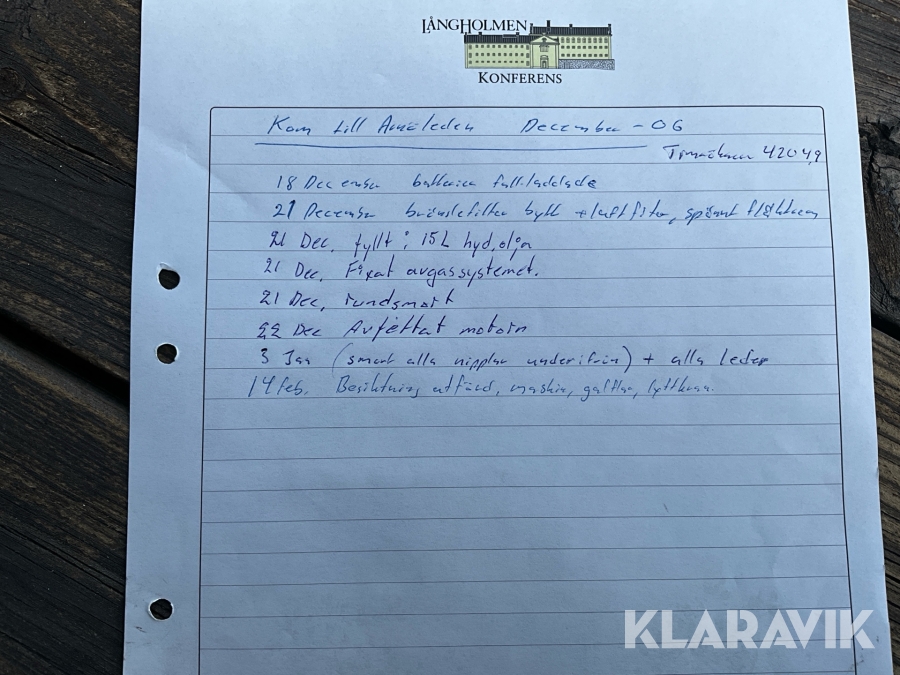 LÅNGHOLMEN
KONFERENS
Kom till December - 06
42049
18 December batterier fulladdade
21 December bränslefilter bytt + luftfilter, spänt fläktrem
21 Dec, fyllt i 15L hyd.olja
21 Dec, Fixat avgassystemet.
21 Dec, rundsmort
22 Dec Avfettat motorn
3 Jan (smort alla nipplar underifrån) + alla leder
14 feb. Besiktning utförd, maskin, gafflar, lyftkorg.
KLARAVIK